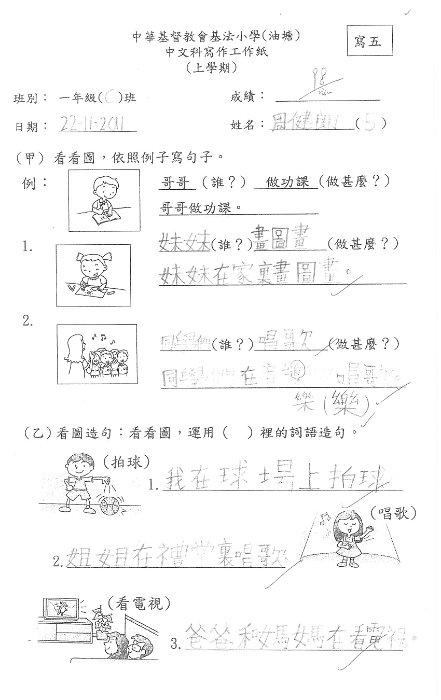 中華基督教會基法小學(油塘)
中文科寫作工作紙
(上學期)
寫五
班別： 一年級( )班
成績： 98
日期： 22-11-2011
姓名： 周健 (5)
(甲) 看看圖，依照例子寫句子。
例：
哥哥 (誰？) 做功課 (做甚麼？)
哥哥做功課。
1.
妹妹(誰？)畫圖畫 (做甚麼？)
妹妹在家裏畫圖畫。
2.
同學們(誰？)唱歌 (做甚麼？)
同學們在音 唱歌
樂(樂)
(乙) 看圖造句：看看圖，運用（ ）裡的詞語造句。
(拍球)
1. 我在球場上拍球
(唱歌)
2. 姐姐在禮堂裏唱歌
(看電視)
3. 爸爸和媽媽在看電視。